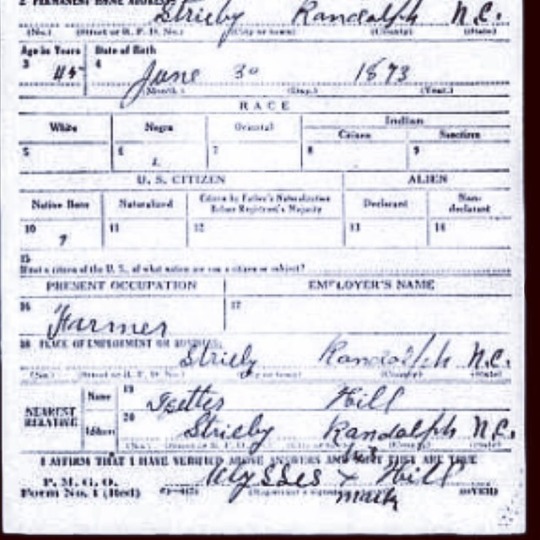 2 PERMANENT HOME ADDRESS
Strieby Randolph N.C.
(No.) (Street or R. F. D. No.) (City or town) (County) (State)
Age in Years Date of Birth
3 45 4 June 30 1873
(Month.) (Day.) (Year.)
RACE
White Negro Oriental Indian
Citizen Noncitizen
5 6 7 8 9
U. S. CITIZEN ALIEN
Native Born Naturalized Citizen by Father's Naturalization Before Registrant's Majority Declarant Non-declarant
10 11 12 13 14
15
If not a citizen of the U. S., of what nation are you a citizen or subject?
PRESENT OCCUPATION EMPLOYER'S NAME
16 Farmer 17
18 PLACE OF EMPLOYMENT OR BUSINESS:
Strieby Randolph N.C.
(No.) (Street or R. F. D. No.) (City or town) (County) (State)
NEAREST RELATIVE Name 19 Hill
Address 20 Strieby Randolph N.C.
(No.) (Street or R. F. D. No.) (City or town) (County) (State)
I AFFIRM THAT I HAVE VERIFIED ABOVE ANSWERS AND THAT THEY ARE TRUE
his
P. M. G. O. Ulysses x Hill
Form No. 1 (Red) mark (OVER)